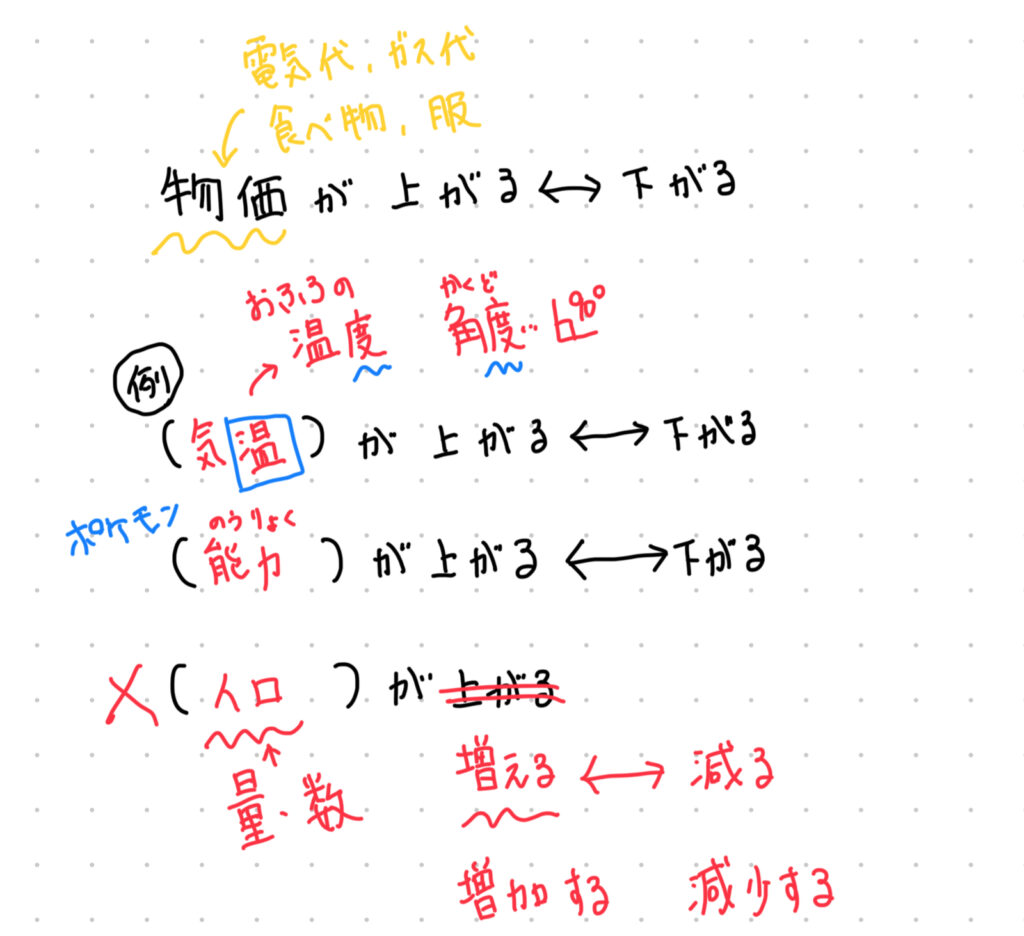 電気代, ガス代
食べ物, 服
物価が 上がる ↔ 下がる
おふろの かくど
温度 角度…
例
(気温)が 上がる ↔ 下がる
ポケモン のうりょく
(能力)が上がる ↔ 下がる
×(人口)が上がる
量・数 増える ↔ 減る
増加する 減少する